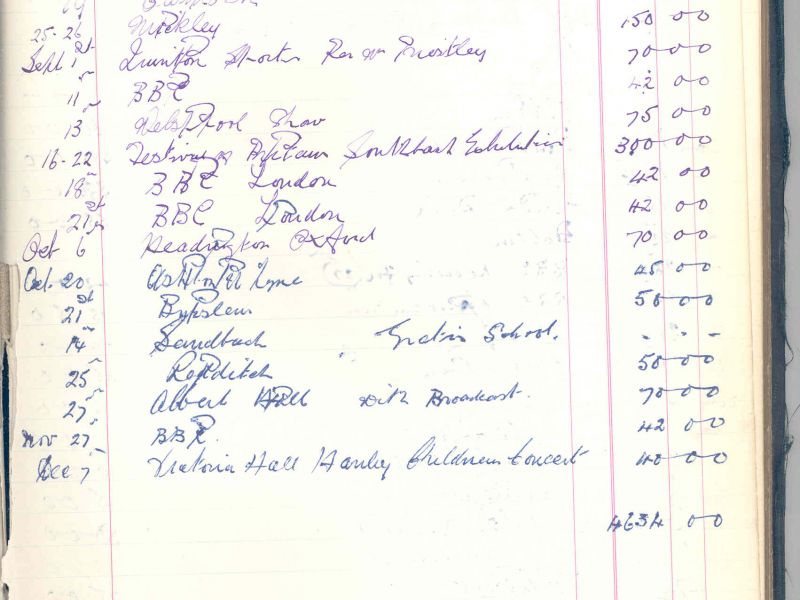 25-26 Mickley 150 00
Sept 1st 70 00
11 BBC 42 00
13 Welshpool Show 75 00
16-22 Festival of Britain Southbank Exhibition 300 00
18 BBC London 42 00
21st BBC London 42 00
Oct 6 Headington Oxford 70 00
Oct. 20 Ashton U Lyne 45 00
21st Burslem 50 00
14 Sandbach Gratis School. - - -
25 Redditch 50 00
27 Albert Hall with Broadcast. 70 00
Nov 27 BBC. 42 00
Dec 7 Victoria Hall Hanley Childrens Concert 40 00
4634 00